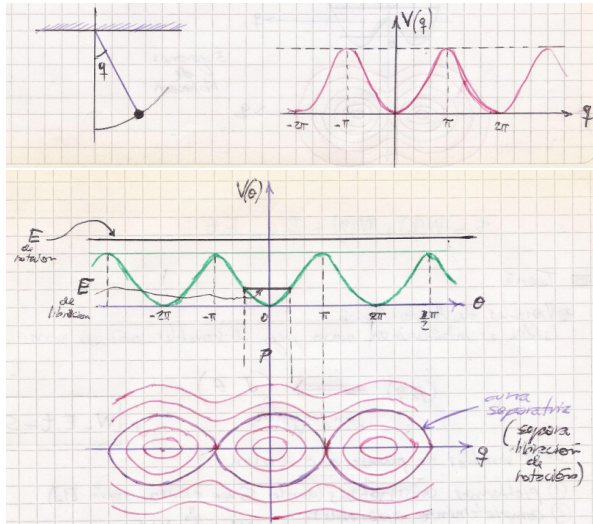 V(q)
q
-2π -π π 2π q
V(θ)
E de rotación
E de libración
-2π -π 0 π 2π θ
p
curva separatriz
(separa libración de rotación)
q